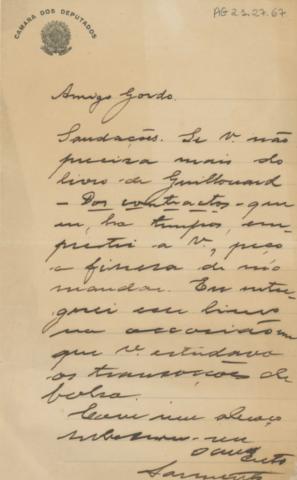 CAMARA DOS DEPUTADOS
AG 23.27.67
Amigo Gordo.
Saudações. Se V. não
precisa mais do
livro de Guillouard
– Dos contractos – que
eu, ha tempos, em-
prestei a V., peço
a fineza de m'o
mandar. Eu entre-
guei esse livro
na occasião em
que V. estudava
as transacções de
bolsa.
Com um abraço
subscrevo-me
Sarmento